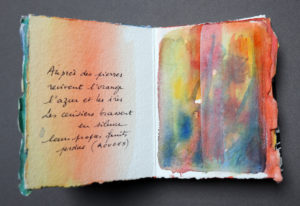 Auprès des pierres
revivent l'orange
l'azur et les iris
Les cerisiers bravent
en silence
leurs propres fruits
perdus